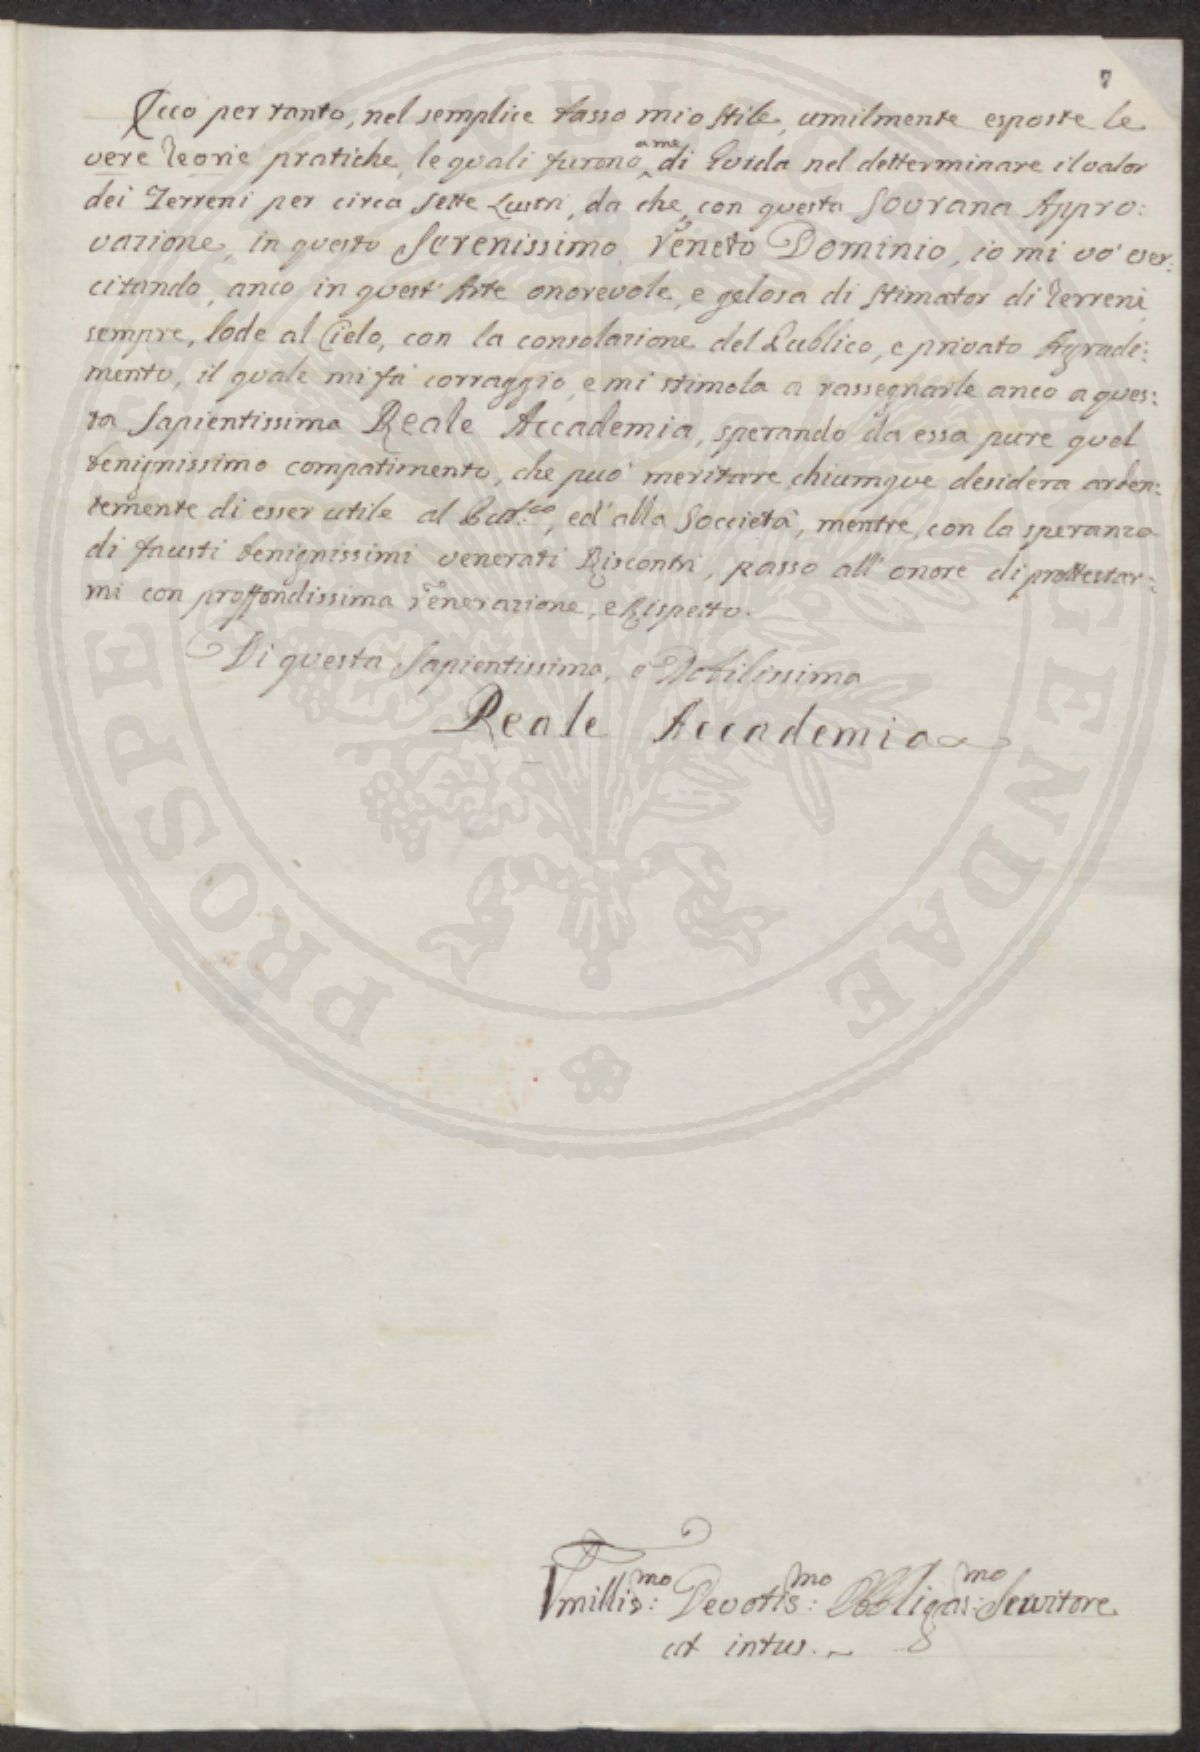 7
Ecco per tanto, nel semplice basso mio stile, umilmente esposte le
vere Teorie pratiche, le quali furono a me di Guida nel detterminare il valor
dei Terreni per circa sette Lustri, da che, con questa Sovrana Appro:
vazione, in questo Serenissimo Veneto Dominio, io mi vò eser:
citando, anco in quest' Arte onorevole, e gelosa di stimator di Terreni,
sempre, lode al Cielo, con la consolazione del Publico, e privato Agradi:
mento, il quale mi fà corraggio, e mi stimola a rassegnarle anco a ques:
ta Sapientissima Reale Accademia, sperando da essa pure quel
benignissimo compatimento, che può meritare chiumque desidera arden:
temente di esser utile al Pub.co, ed' alla Soccietà, mentre, con la speranza
di fausti benignissimi venerati Riscontri, passo all' onore di prottestar:
mi con proffondissima Venerazione, e Rispetto.
Di questa Sapientissima, e Nobilissima
Reale Accademia
Vmillis:mo Devotis:mo Obbligas:mo Servitore
ut intus.
PUBLICAE
PROSPERITATI
AUGENDAE